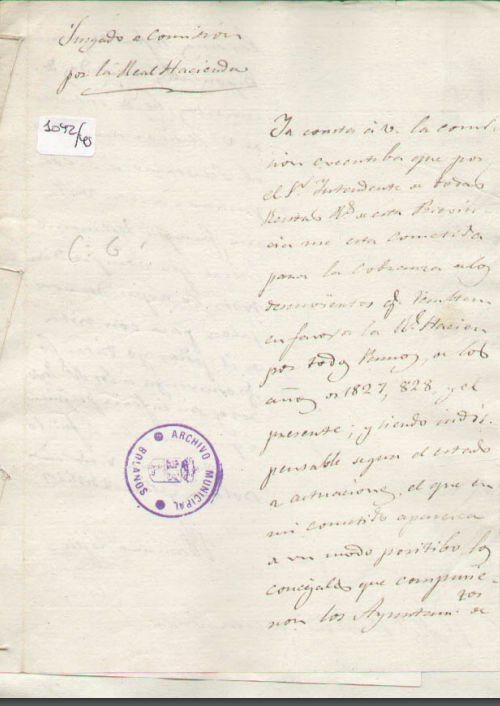 Juzgado e Comision
por la Real Hacienda
1092/45
Ya consta á v. la comi-
sion executiba que por
el Sr. Intendente e todas
Rentas Rs. e esta Provin-
cia me esta cometida
para la cobranza e los
descuviertos q. resultan
en favor e la Rl. Hacien
por todos Ramos, en los
años e 1827, 828, y el
presente; y siendo indis-
pensable segun el estado
e actuacion, el que en
mi cometido aparezca
e un modo positibo, los
concejales que compusie-
ron los Ayuntam.tos e
ARCHIVO MUNICIPAL
BOLAÑOS